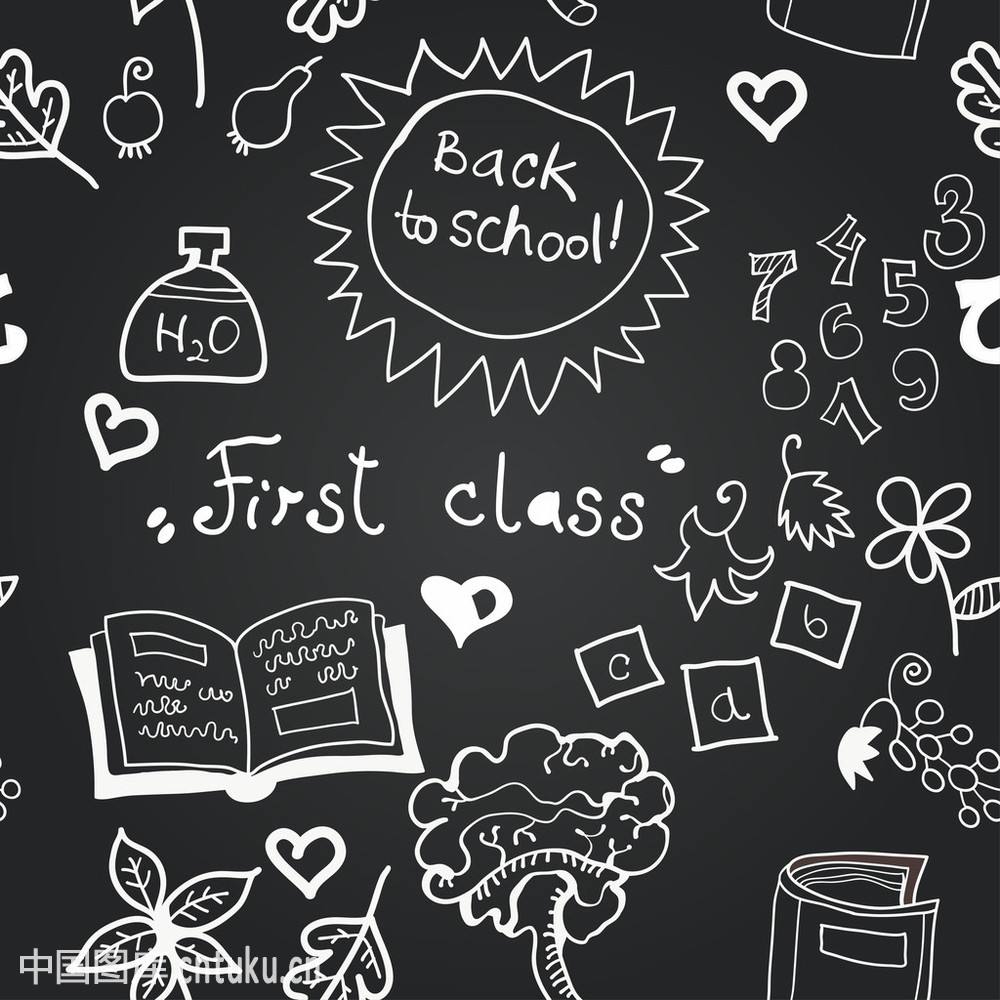 Back
to school!
3
4
7
5
6
H₂O
8
9
1
„First class”
b
c
a
中国图库 cntuku.cn